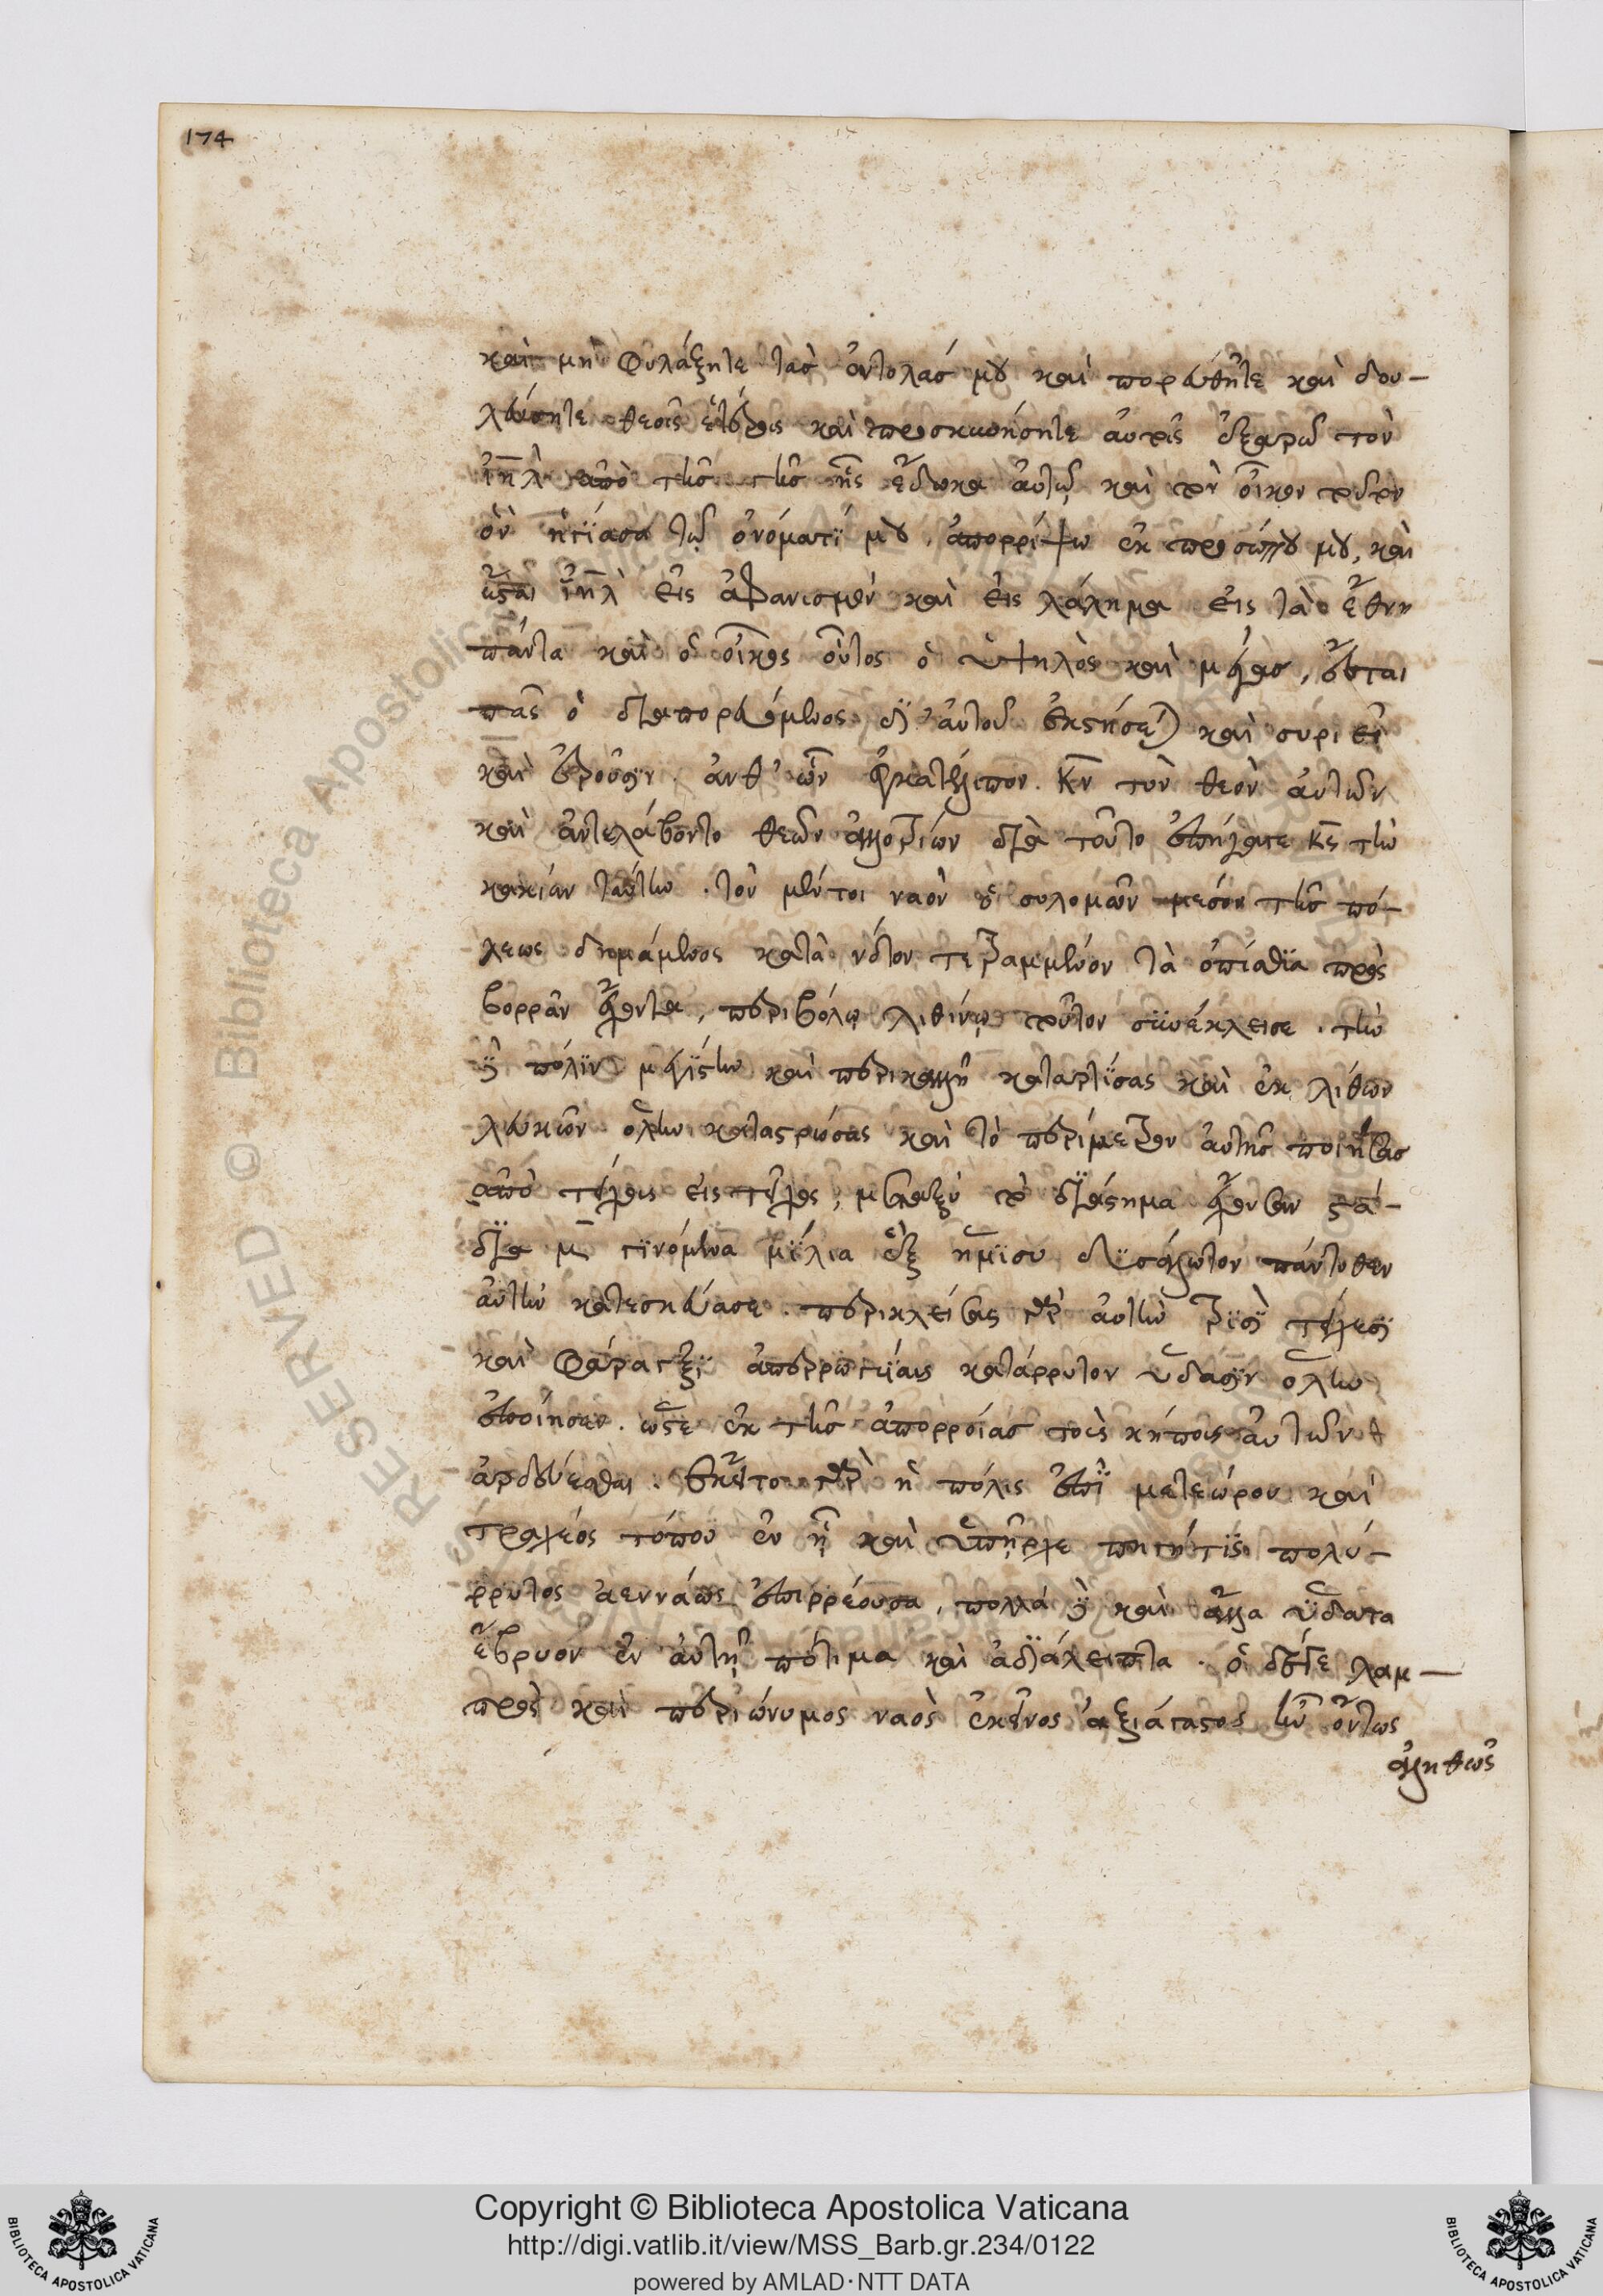 174
καὶ μὴ φυλάξητε τὰς ἐντολάς μου καὶ πορευθῆτε καὶ δου-
λεύσητε θεοῖς ἑτέροις καὶ προσκυνήσητε αὐτοῖς ἐξαρῶ τὸν
ἰηλ ἀπὸ τῆς γῆς ἧς ἔδωκα αὐτῷ καὶ τὸν οἶκον τοῦτον
ὃν ἡγίασα τῷ ὀνόματί μου, ἀπορρίψω ἐκ προσώπου μου, καὶ
ἔσται ἰηλ εἰς ἀφανισμὸν καὶ εἰς λάλημα εἰς τὰ ἔθνη
πάντα καὶ ὁ οἶκος οὗτος ὁ ὑψηλὸς καὶ μέγας, ἔσται
πᾶς ὁ διαπορευόμενος δι' αὐτοῦ ἐκστήσεται καὶ συριεῖ
καὶ ἐροῦσιν. ἀνθ' ὧν ἐγκατέλιπον κν τὸν θεὸν αὐτῶν
καὶ ἀντελάβοντο θεῶν ἀλλοτρίων διὰ τοῦτο ἐπήγαγε κς τὴν
κακίαν ταύτην. τὸν μέντοι ναὸν ὁ σολομῶν μέσον τῆς πό-
λεως δειμάμενος κατὰ νότον τετραμμένον τὰ ὀπίσθια πρὸς
βορρᾶν ἔχοντα, περιβόλῳ λιθίνῳ τοῦτον συνέκλεισε. τὴν
δὲ πόλιν μεγίστην καὶ περικαλλῆ καταρτίσας καὶ ἐκ λίθων
λευκῶν ὅλην καταστρώσας καὶ τὸ περίμετρον αὐτῆς ποιήσας
ἀπὸ τείχους εἰς τεῖχος, μεταξὺ τὸ διάστημα ἔχουσαν στά-
δια μ γινόμενα μίλια ἓξ ἥμισυ δυσάλωτον πάντοθεν
αὐτὴν κατεσκεύασε. περικλείσας γὰρ αὐτὴν τρισὶ τείχεσι
καὶ φάραγξι ἀπερρωγυίαις κατάρρυτον ὕδασιν ὅλην
ἐποίησεν. ὥστε ἐκ τῆς ἀπορροίας τοὺς κήποις αὐτῶν
ἀρδεύεσθαι. ἔκειτο γὰρ ἡ πόλις ἐπὶ μετεώρου καὶ
τραχέος τόπου ἐν ᾗ καὶ ὑπῆρχε πηγή τις πολύ-
ρρυτος ἀεννάως ἐπιρρέουσα, πολλὰ δὲ καὶ ἄλλα ὕδατα
ἔβρυον ἐν αὐτῇ πότιμα καὶ ἀδιάλειπτα. ὁ δέ γε λαμ-
πρὸς καὶ περιώνυμος ναὸς ἐκεῖνος ἀξιάγαστος ἦν ὄντως
ἀληθῶς
Copyright © Biblioteca Apostolica Vaticana
http://digi.vatlib.it/view/MSS_Barb.gr.234/0122
powered by AMLAD·NTT DATA
BIBLIOTECA APOSTOLICA VATICANA
BIBLIOTECA APOSTOLICA VATICANA
RESERVED © Biblioteca Apostolica